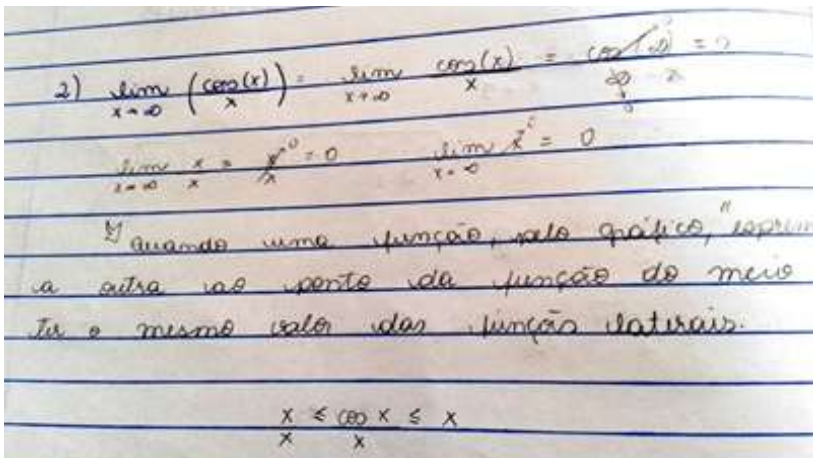 2) lim x→∞ (cos(x)/x) = lim x→∞ cos(x)/x = cos(∞)/∞ =
lim x→∞ x/x = x/x 0 = 0 lim x→∞ x 0 = 0
quando uma função, pelo gráfico, "esprem
a outra ao ponto da função do meio
ter o mesmo valor das funções laterais.
x/x ≤ cos x/x ≤ x